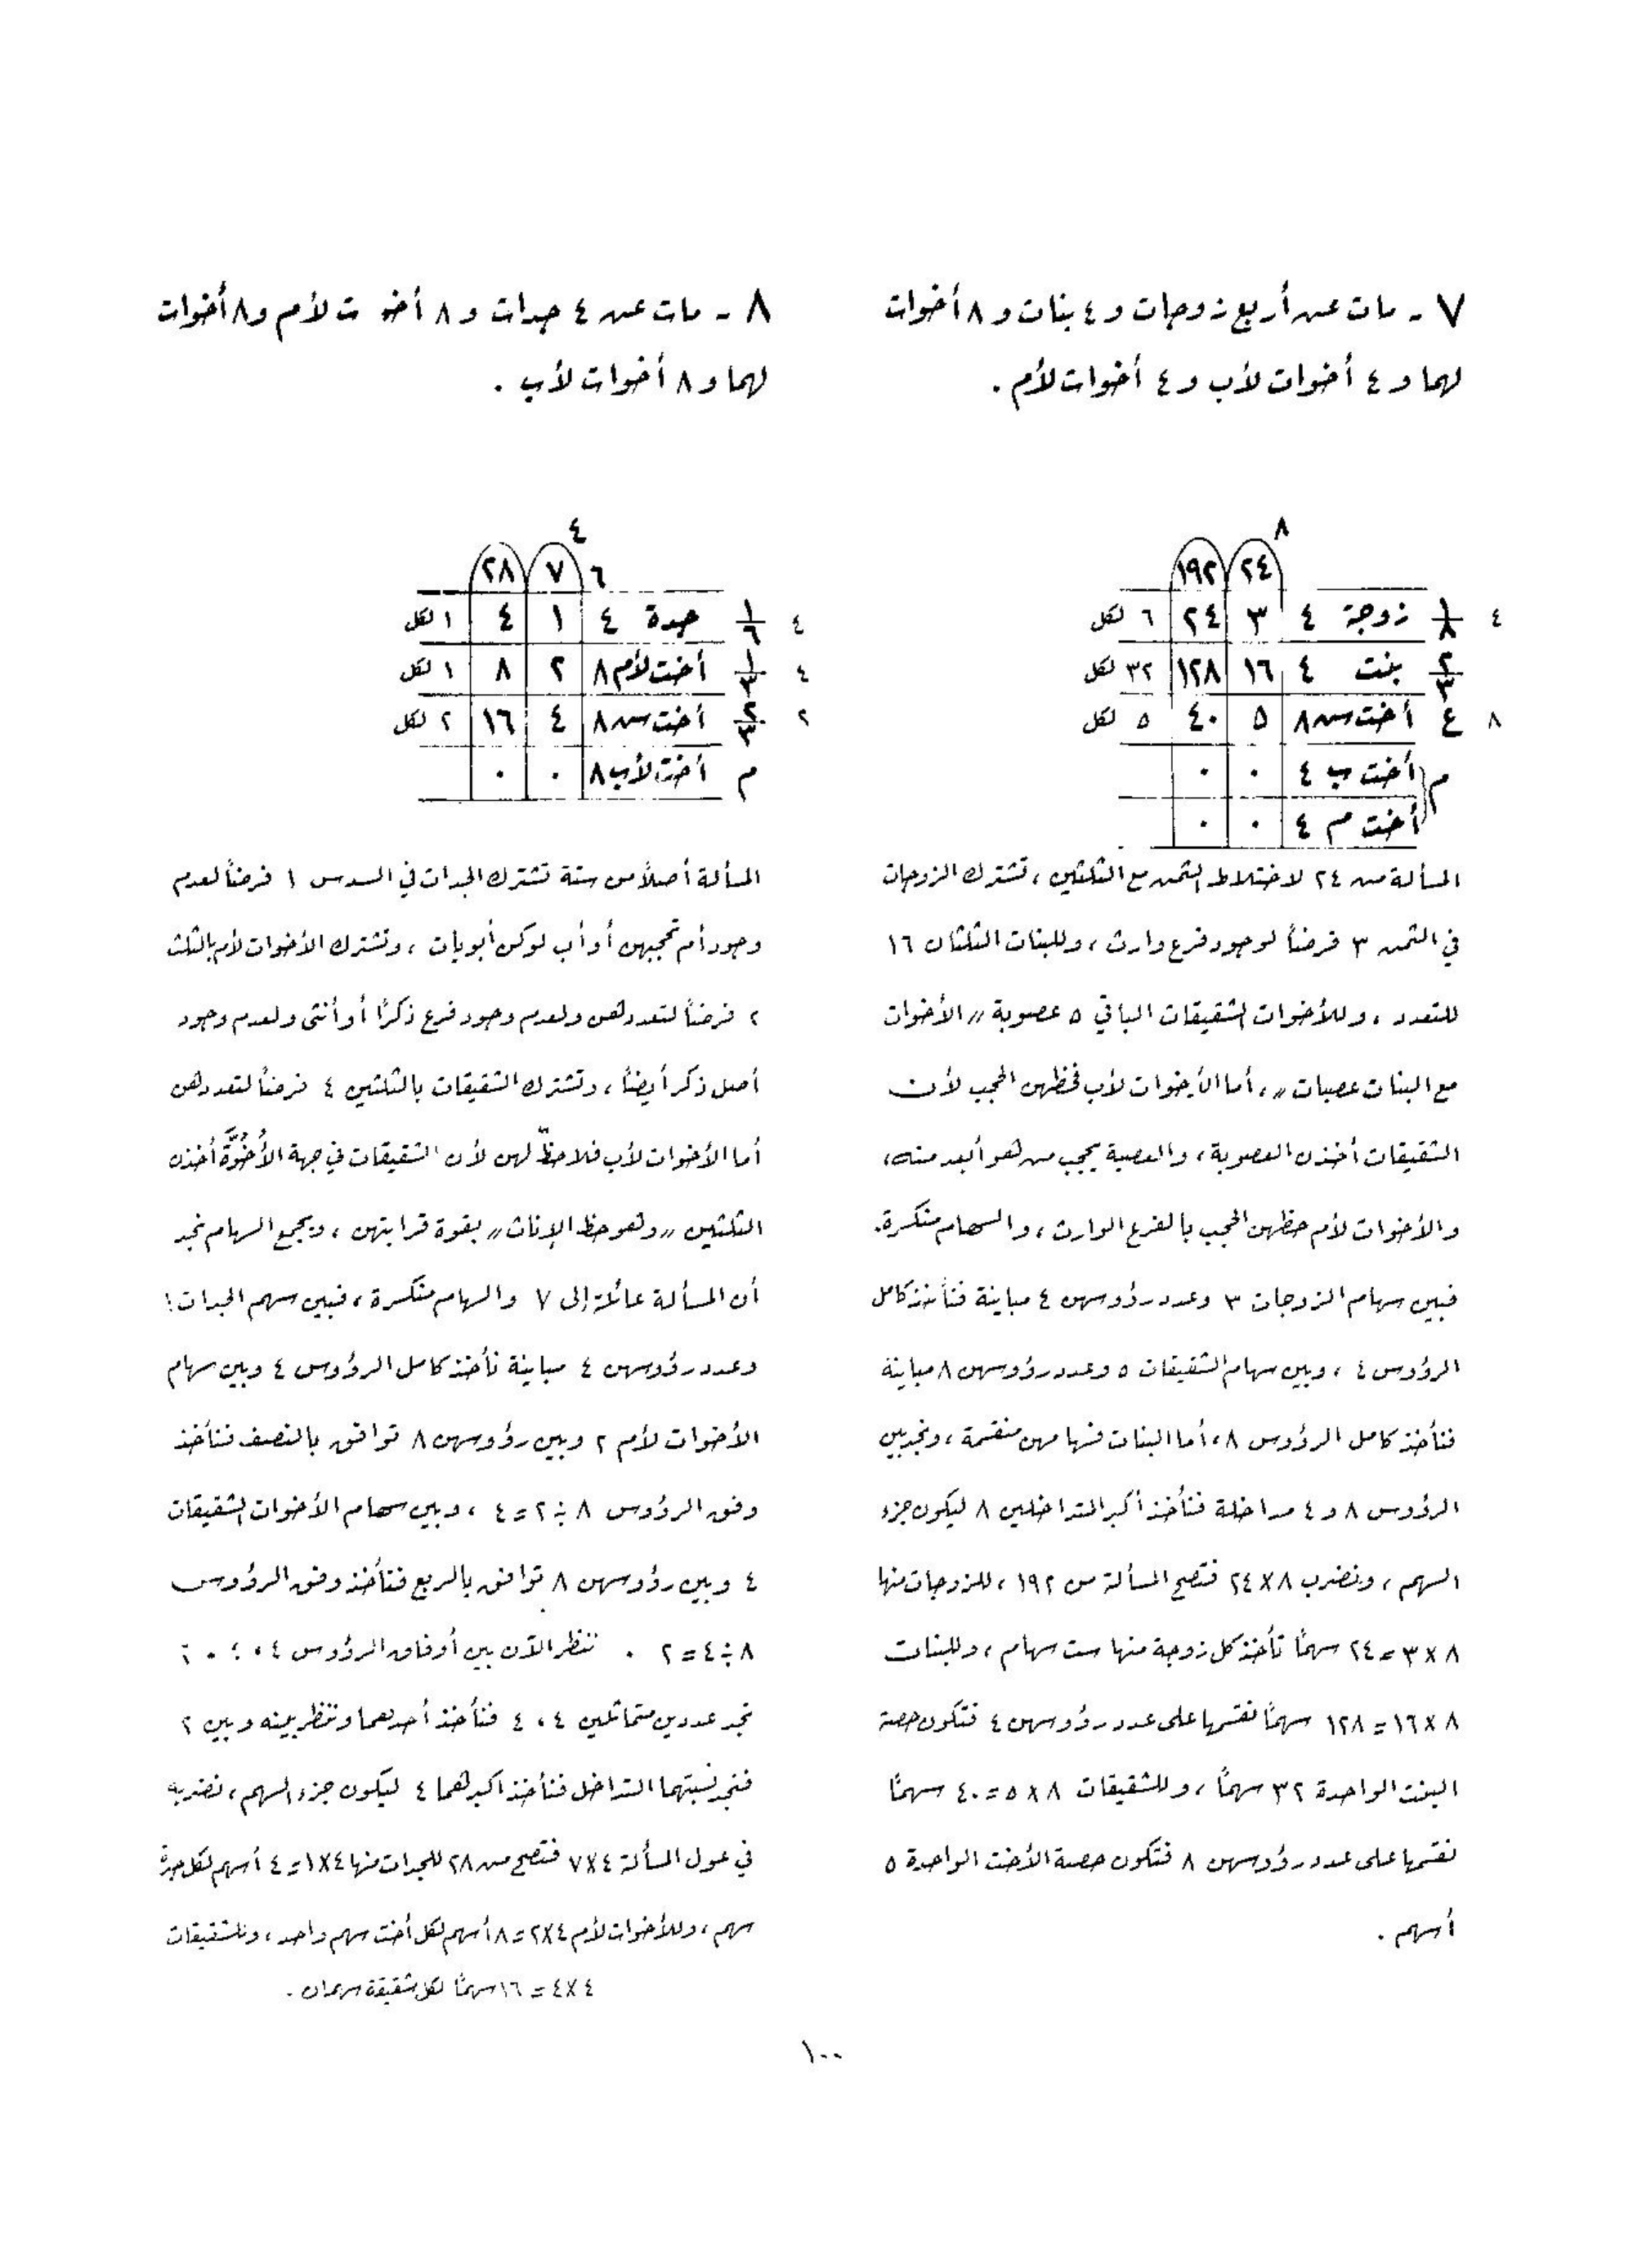 ٧ - مات عن أربع زوجات و ٤ بنات و ٨ أخوات
لهما و ٤ أخوات لأب و ٤ أخوات لأم .
٨
٢٤ ١٩٢
٤ ١/٨ زوجة ٤ ٣ ٢٤ ٦ لكل
٢/٣ بنت ٤ ١٦ ١٢٨ ٣٢ لكل
٨ ع أخت س ٨ ٥ ٤٠ ٥ لكل
م أخت ب ٤ ٠ ٠
أخت م ٤ ٠ ٠
المسألة من ٢٤ لاختلاط الثمن مع الثلثين ، تشترك الزوجات
في الثمن ٣ فرضاً لوجود فرع وارث ، وللبنات الثلثان ١٦
للتعدد ، وللأخوات الشقيقات الباقي ٥ عصوبة ,, الأخوات
مع البنات عصبات ,, ، أما الأخوات لأب فحظهن الحجب لأن
الشقيقات أخذن العصوبة ، والعصبة يحجب من هو أبعد منه ،
والأخوات لأم حظهن الحجب بالفرع الوارث ، والسهام منكسرة .
فبين سهام الزوجات ٣ وعدد رؤوسهن ٤ مباينة فنأخذ كامل
الرؤوس ٤ ، وبين سهام الشقيقات ٥ وعدد رؤوسهن ٨ مباينة
فنأخذ كامل الرؤوس ٨ ، أما البنات فسهامهن منقسمة ، ونجد بين
الرؤوس ٨ و ٤ مداخلة فنأخذ أكبر المتداخلين ٨ ليكون جزء
السهم ، ونضرب ٨ × ٢٤ فتصح المسألة من ١٩٢ ، للزوجات منها
٨ × ٣ = ٢٤ سهمًا تأخذ كل زوجة منها ست سهام ، وللبنات
٨ × ١٦ = ١٢٨ سهمًا نقسمها على عدد رؤوسهن ٤ فتكون حصة
البنت الواحدة ٣٢ سهمًا ، وللشقيقات ٨ × ٥ = ٤٠ سهمًا
نقسمها على عدد رؤوسهن ٨ فتكون حصة الأخت الواحدة ٥
أسهم .
٨ - مات عن ٤ جدات و ٨ أخوات لأم و ٨ أخوات
لهما و ٨ أخوات لأب .
٤
٦ ٧ ٢٨
٤ ١/٦ جدة ٤ ١ ٤ ١ لكل
٤ ١/٣ أخت لأم ٨ ٢ ٨ ١ لكل
٢ ٢/٣ أخت س ٨ ٤ ١٦ ٢ لكل
م أخت لأب ٨ ٠ ٠
المسألة أصلاً من ستة تشترك الجدات في السدس ١ فرضاً لعدم
وجود أم تحجبهن أو أب لو كن أبويات ، وتشترك الأخوات لأم بالثلث
٢ فرضاً لتعددهن ولعدم وجود فرع ذكرًا أو أنثى ولعدم وجود
أصل ذكر أيضاً ، وتشترك الشقيقات بالثلثين ٤ فرضاً لتعددهن
أما الأخوات لأب فلا حظّ لهن لأن الشقيقات في جهة الأُخُوَّة أخذن
الثلثين ,, وهو حظ الإناث ,, بقوة قرابتهن ، وبجمع السهام نجد
أن المسألة عائلة إلى ٧ والسهام منكسرة ، فبين سهم الجدات ١
وعدد رؤوسهن ٤ مباينة نأخذ كامل الرؤوس ٤ وبين سهام
الأخوات لأم ٢ وبين رؤوسهن ٨ توافق بالنصف فنأخذ
وفق الرؤوس ٨ ÷ ٢ = ٤ ، وبين سهام الأخوات الشقيقات
٤ وبين رؤوسهن ٨ توافق بالربع فنأخذ وفق الرؤوس
٨ ÷ ٤ = ٢ . ننظر الآن بين أوفاق الرؤوس ٤ ،
نجد عددين متماثلين ٤ ، ٤ فنأخذ أحدهما وننظر بينه وبين ٢
فنجد نسبتهما التداخل فنأخذ أكبرهما ٤ ليكون جزء السهم ، نضربه
في عول المسألة ٤ × ٧ فتصح من ٢٨ للجدات منها ٤ × ١ = ٤ أسهم لكل جدة
سهم ، وللأخوات لأم ٤ × ٢ = ٨ أسهم لكل أخت سهم واحد ، وللشقيقات
٤ × ٤ = ١٦ سهمًا لكل شقيقة سهمان .
١٠٠